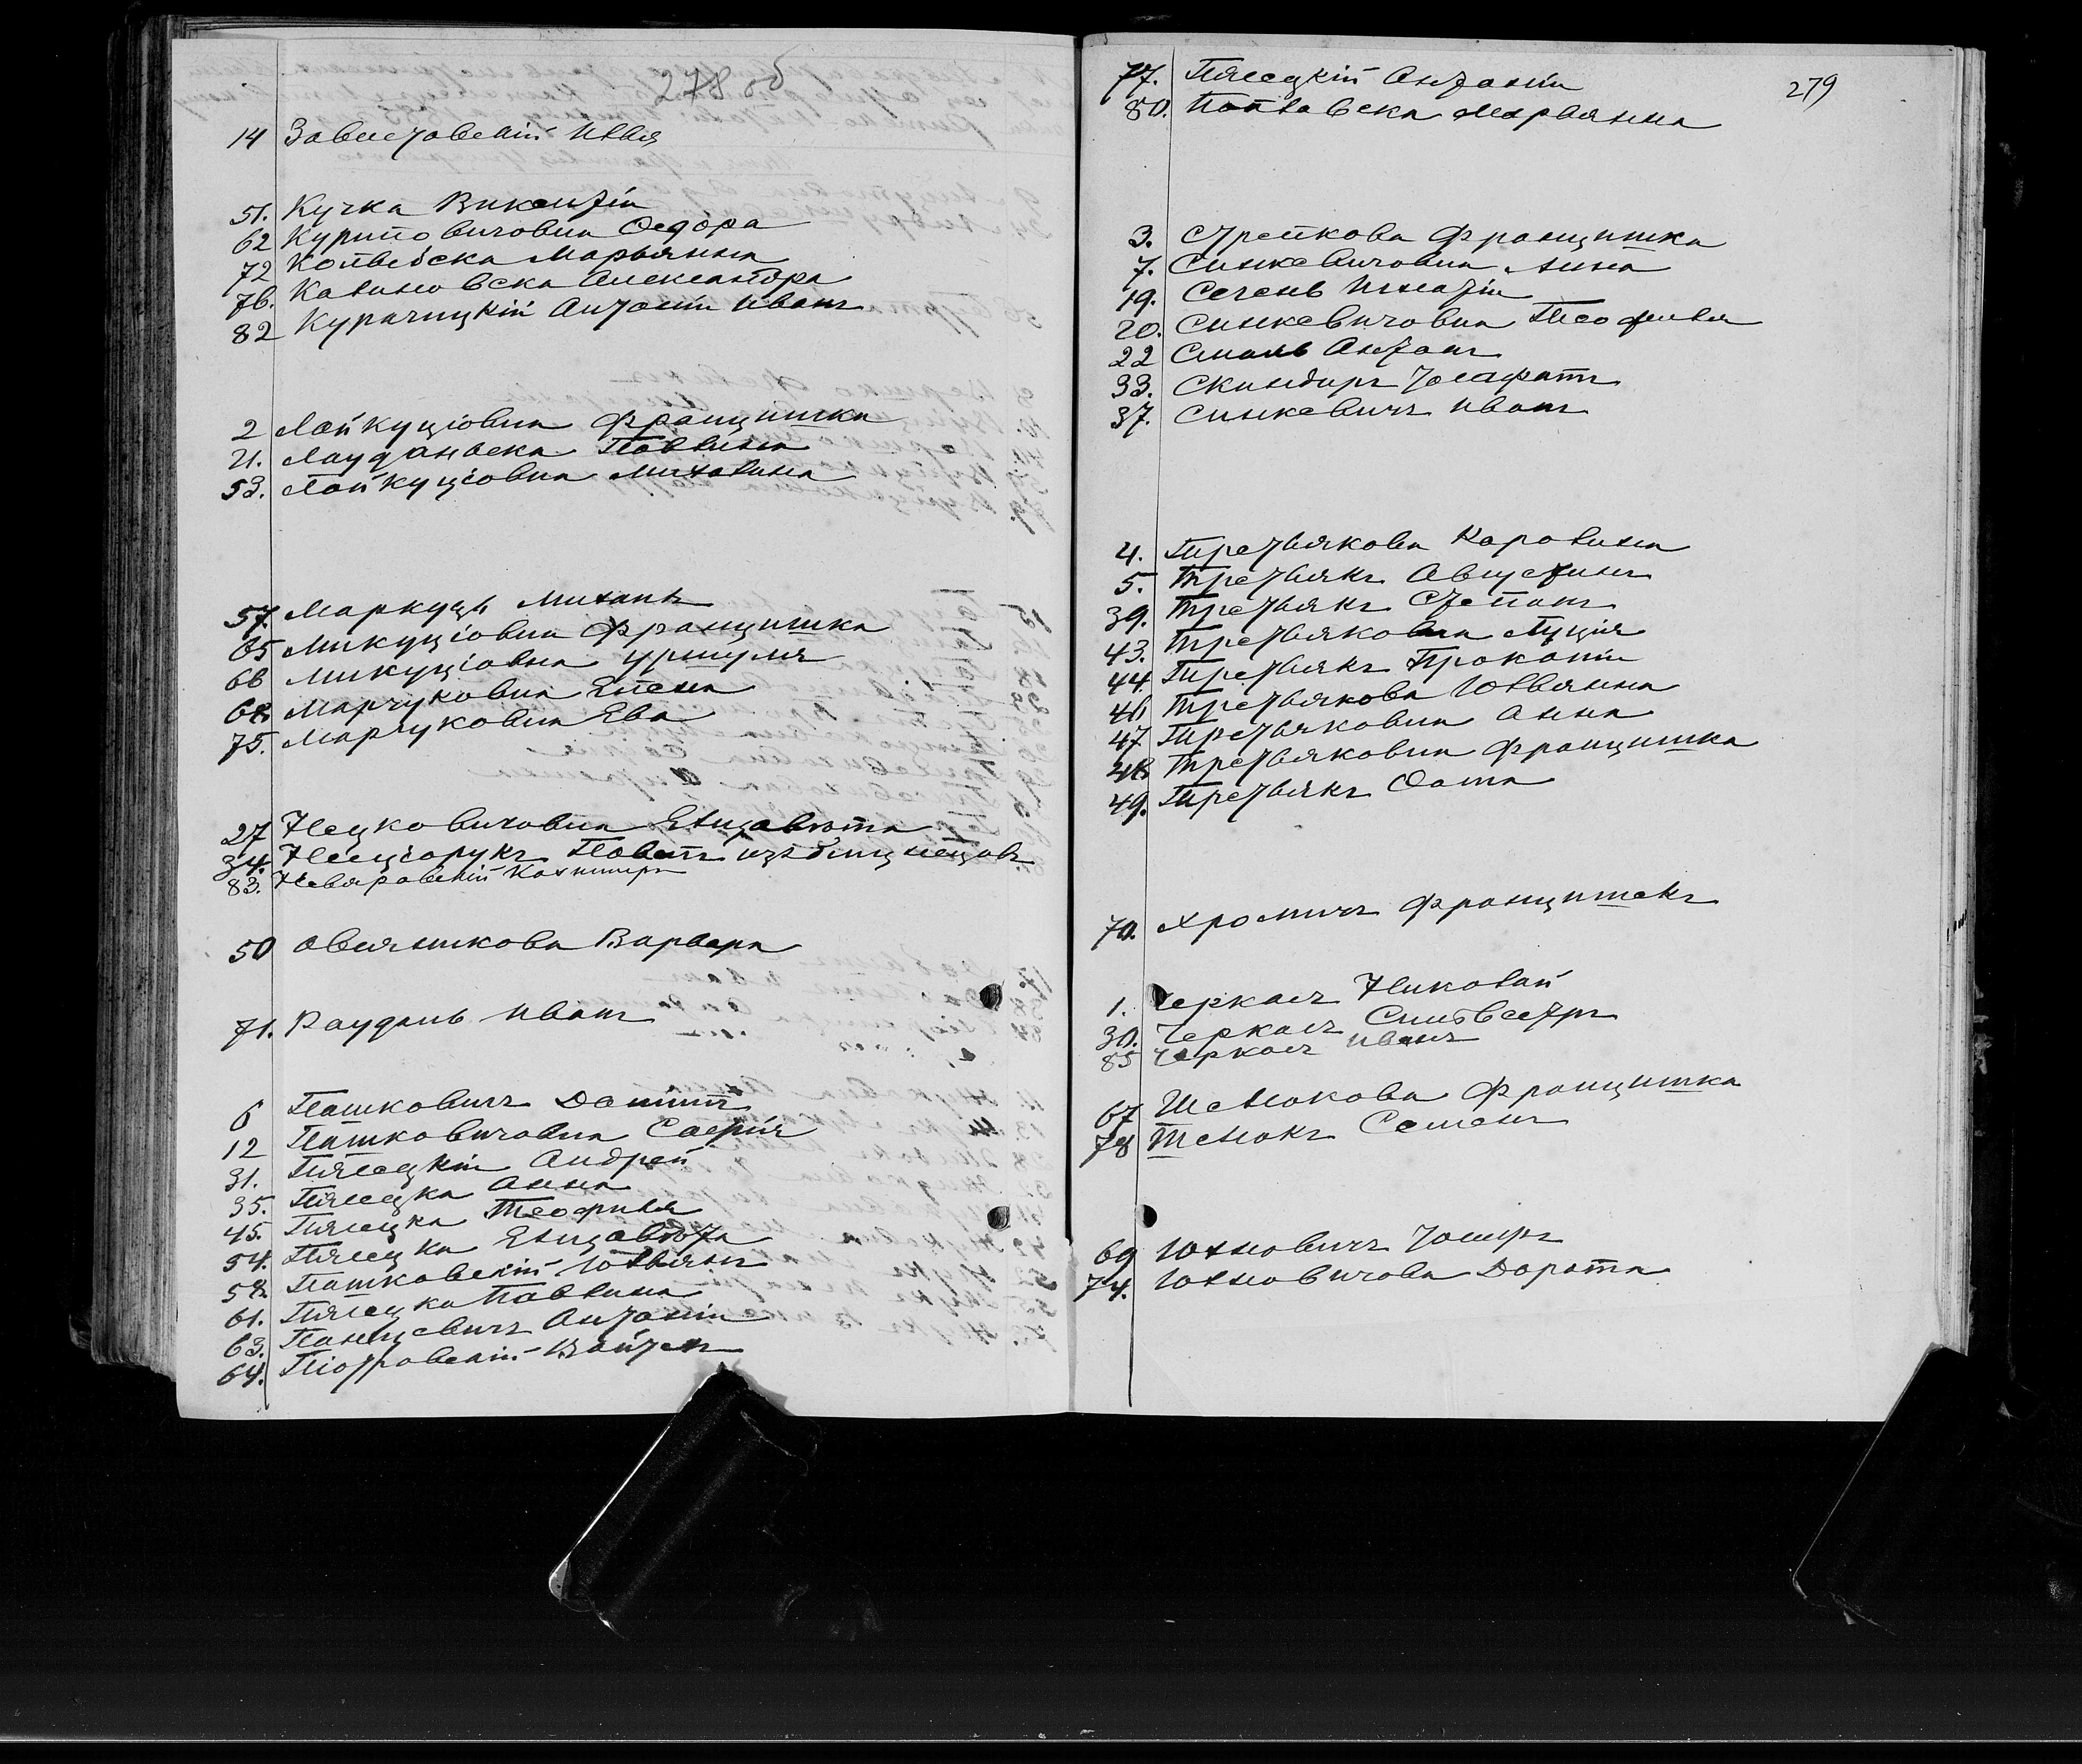 278 об
14 Завистовскій Илья
51. Кучка Викентій
62 Куриловичовна Федора
72 Колвейска Марьянна
76. Калиновска Александра
82 Курачицкій Антоній Иванъ
2 Лойкуціовна Францишка
21. Лауданска Павлина
53. Лойкуціовна Михалина
57. Маркуць Михалъ
65 Микуціовна Францишка
66 Микуціовна Уршуля
68. Марчуковна Елена
75. Марчуковна Ева
27 Нецковичовна Елизавета
34. Нецьорукъ Павелъ изъ близнецовъ
83. Невяровскій Казимиръ
50 Овсяникова Варвара
71. Раудань Иванъ
6 Пашковичъ Даніилъ
12 Пашковичовна Софія
31. Пясецкій Андрей
35. Пясецка Анна
45. Пясецка Теофиля
54. Пясецка Елизавета
58. Пашковскій Юльянъ
61. Пясецка Павлина
63. Панцевичъ Антоній
64. Піотровскій Войтехъ
279
77. Пясецкій Антоній
80. Полтавска Марьянна
3. Стрелкова Францишка
7. Синкевичовна Анна
19. Сечень Игнатій
20. Синкевичовна Теофиля
22 Смаль Антонъ
33. Скиндиръ Юсафатъ
37. Синкевичъ Иванъ
4. Третьякова Каролина
5. Третьякъ Августинъ
39. Третьякъ Степанъ
43. Третьяковна Луція
44. Третьякъ Прокопій
46 Третьякова Юльянна
47 Третьяковна Анна
48. Третьяковна Францишка
49. Третьякъ Фома
70. Хромичъ Францишекъ
1. Черкасъ Николай
30. Черкасъ Сильвестръ
85 Черкасъ Иванъ
67 Шелюкова Францишка
78 Шелюкъ Семенъ
69 Юхновичъ Юзефъ
74. Юхновичова Дорота